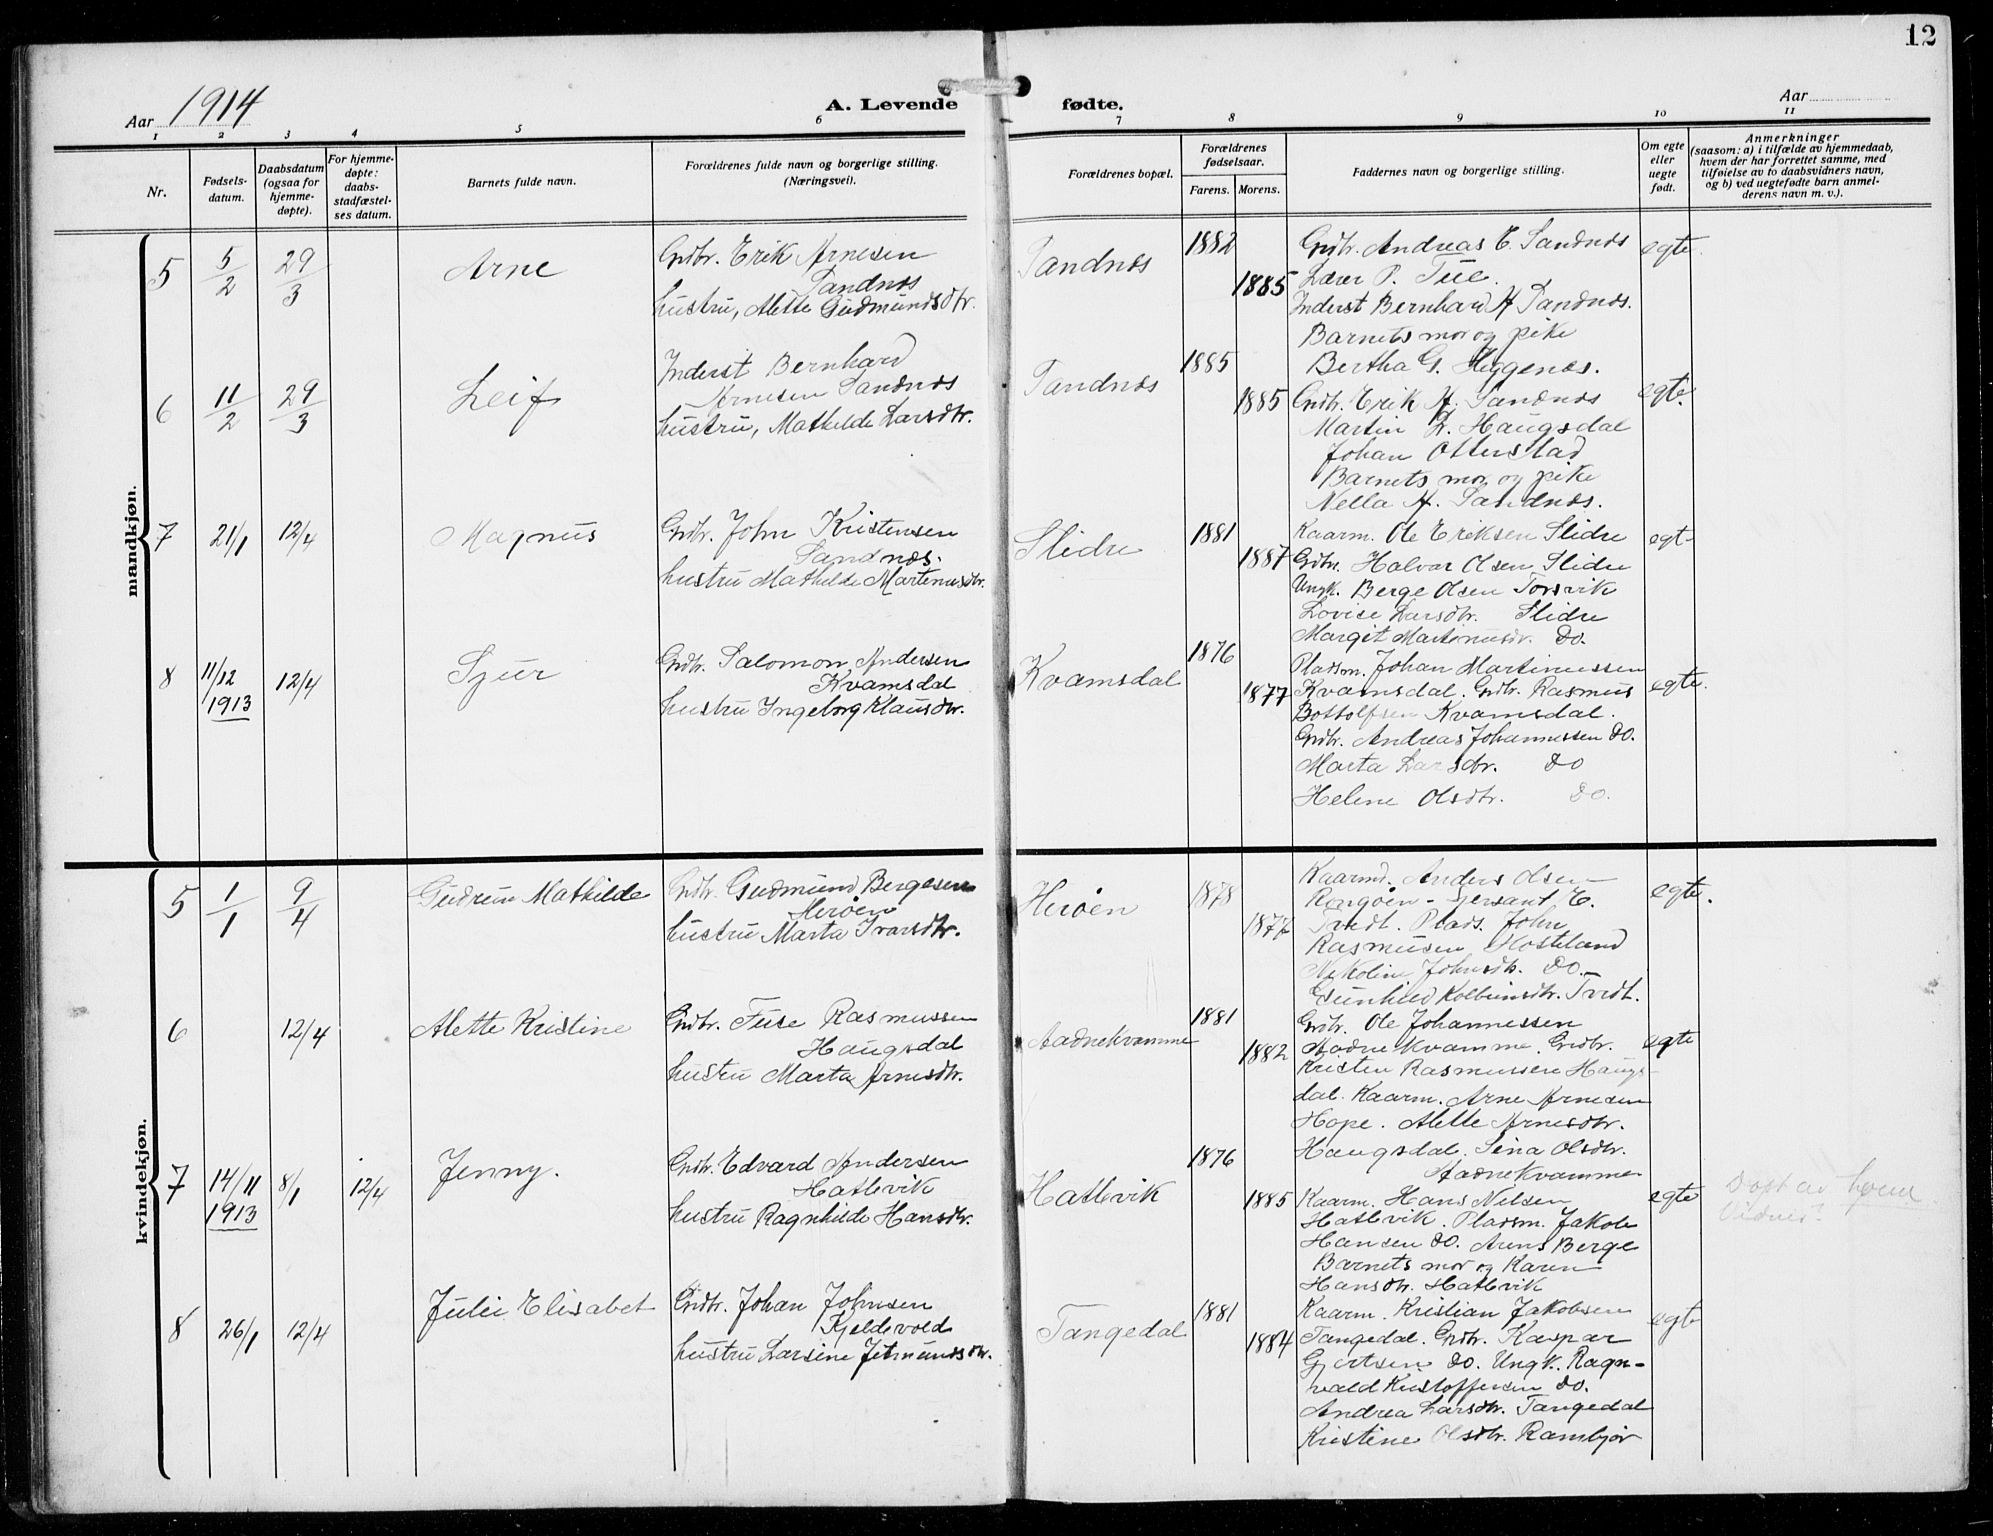 12
Aar 1914
A. Levende fødte.
Aar
1 2 3 4 5 6 7 8 9 10 11
Nr.
Fødsels-
datum.
Daabsdatum
(ogsaa for
hjemme-
døpte).
For hjemme-
døpte:
daabs-
stadfæstel-
ses datum.
Barnets fulde navn.
Forældrenes fulde navn og borgerlige stilling.
(Næringsvei).
Forældrenes bopæl.
Forældrenes
fødselsaar.
Farens. Morens.
Faddernes navn og borgerlige stilling.
Om egte
eller
uegte
født.
Anmerkninger
(saasom: a) i tilfælde av hjemmedaab,
hvem der har forrettet samme, med
tilføielse av to daabsvidners navn,
og b) ved uegtefødte barn anmel-
derens navn m. v.).
mandkjøn.
5 5/2 29/3 Arne
Grdbr. Erik Arnesen
Sandnæs
hustru, Alette Gudmundsdtr.
Sandnæs 1882 1885
Grdbr. Andreas E. Sandnæs
Lærer P. Tue.
Inderst Bernhard A Sandnæs.
Barnets mor og pike
Bertha G. Hyggenæs.
egte.
6 11/2 29/3 Leif
Inderst Bernhard
Arnesen Sandnæs
hustru, Mathilde Larsdtr.
Sandnæs 1885 1885
Grdbr. Erik A. Sandnæs
Martin L. Haugsdal
Johan Otterstad
Barnets mor og pike
Nella A. Sandnæs.
egte.
7 21/1 12/4 Magnus
Grdbr. John Kristensen
Sandnæs.
hustru Mathilde Martinusdtr.
Slidre 1881 1887
Kaarm. Ole Eriksen Slidre
Grdbr. Halvar Olsen Slidre
Ungk. Berge Olsen Torsvik
Lovise Larsdtr. Slidre
Margit Martinusdtr. Do.
egte
8 11/12 1913 12/4 Sjur
Grdbr. Salomon Andersen
Kvamsdal
hustru Ingeborg Klausdtr.
Kvamsdal 1876 1877
Pladsm. Johan Martinussen
Kvamsdal. Grdbr. Rasmus
Bottolfsen Kvamsdal.
Grdbr. Andreas Johannessen Do.
Marta Larsdtr. Do
Helene Olsdtr. Do.
egte.
kvindekjøn.
5 1/1 9/4 Gudrun Mathilde
Grdbr. Gudmund Bergesen
Herøen
hustru Marta Ivarsdtr.
Herøen 1878 1877
Kaarmd. Anders Olsen
Ringøen - Sersant E.
Tvedt. Plads. John
Rasmusen Hosteland
Nikoline Johnsdtr. Do.
Gunhild Kolbeinsdtr. Tvedt.
egte.
6 12/4 Alette Kristine
Grdbr. Fuse Rasmussen
Haugsdal
hustru Marta Arnesdtr.
Aadnekvamme 1881 1882
Grdbr. Ole Johannessen
Aadnekvamme. Grdbr.
Kristen Rasmussen Haugs-
dal. Kaarm. Arne Arnesen
Hope. Alette Arnesdtr.
Haugsdal. Sina Olsdtr.
Aadnekvamme
egte
7 14/11 1913 8/1 12/4 Jenny.
Grdbr. Edvard Andersen
Hatlevik
hustru Ragnhilde Hansdtr.
Hatlevik 1876 1885
Kaarm. Hans Nilsen
Hatlevik. Pladsm. Jakob
Hansen Do. Arens Berge
Barnets mor og Karen
Hansdtr. Hatlevik
egte
Døpt av hvem
Vidner?
8 26/1 12/4 Julie Elisabet
Grdbr. Johan Johnsen
Kjeldevold
hustru Larsine Jetmundsdtr.
Tangedal 1881 1884
Kaarm. Kristian Jakobsen
Tangedal. Grdbr. Kaspar
Gjertsen Do. Ungk. Ragn-
vald Kristoffersen Do.
Andrea Larsdtr. Tangedal
Kristine Olsdtr. Rambjør
egte